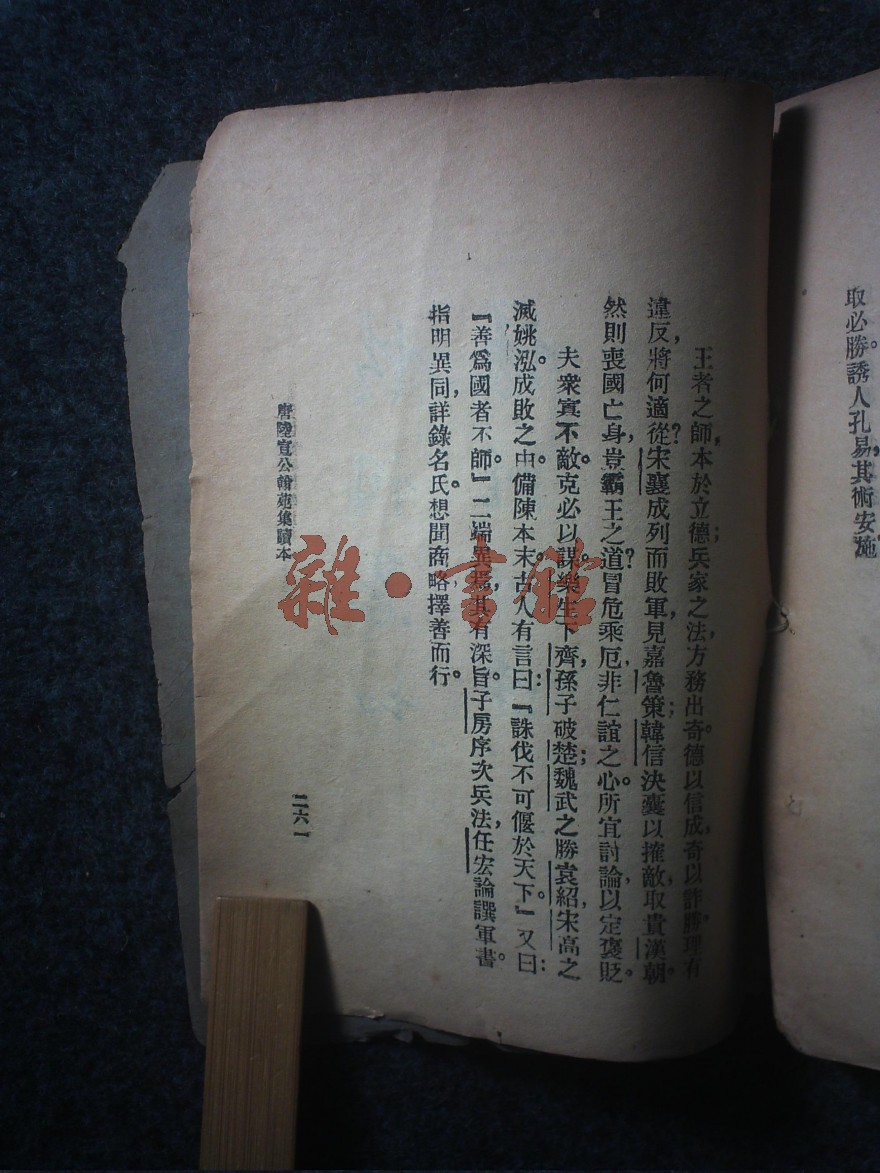 取必勝。誘人孔易,其術安施
王者之師,本於立德;兵家之法,方務出奇。德以信成,奇以詐勝。理有
違反,將何適從?宋襄成列而敗軍,見嘉魯策;韓信決囊以摧敵,取貴漢朝。
然則喪國亡身,豈霸王之道?冒危乘厄,非仁誼之心。所宜討論,以定褒貶。
夫衆寡不敵,克必以謀。樂生下齊,孫子破楚;魏武之勝袁紹,宋高之
滅姚泓。成敗之由,備陳本末。古人有言曰:『誅伐不可偃於天下。』又曰:
『善爲國者不師。』二端異焉,其有深旨。子房序次兵法,任宏論譔軍書。
指明異同,詳錄名氏。想聞商略,擇善而行。
唐陸宣公翰苑集讀本
二六一
雜·書館